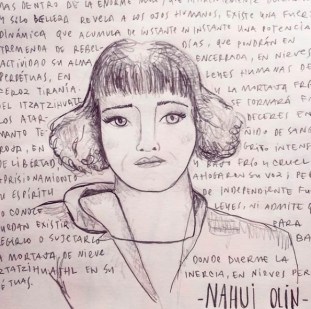 MAS DENTRO DE LA ENORME
Y SÓLO BELLEZA REVELA A LOS OJOS HUMANOS, EXISTE UNA FUERZA
DINÁMICA QUE ACUMULA DE INSTANTE IN INSTANTE UNA POTENCIA
TREMENDA DE REBEL DÍAS, QUE PONDRÁN EN
ACTIVIDAD SU ALMA ENCERRADA, EN NIEVES
PERPETUAS, EN LEYES HUMANAS DE
FEROZ TIRANÍA. Y LA MORTAJA FRÍ
DEL ITZATZIHUETL SE TORNARÁ E
LOS ATAR DECERES EN
MANTO TE ÑIDO DE SANG
ROJA, EN GRITO INTENS
DE LIBERTAD Y BAJO FRÍO Y CRUEL
APRISIONAMIENTO AHOGARON SU VOZ; PE
U ESPÍRITU DE INDEPENDIENTE FU
O CONOCE LEYES, NI ADMITE Q
UEDAN EXISTIR PARA
REGIRLO O SUJETARLO BA
A MORTAJA DE NIEVE DONDE DUERME LA
TZATZIHUATL EN SU INERCIA, EN NIEVES PER
ETUAS.
-NAHUI OLIN-